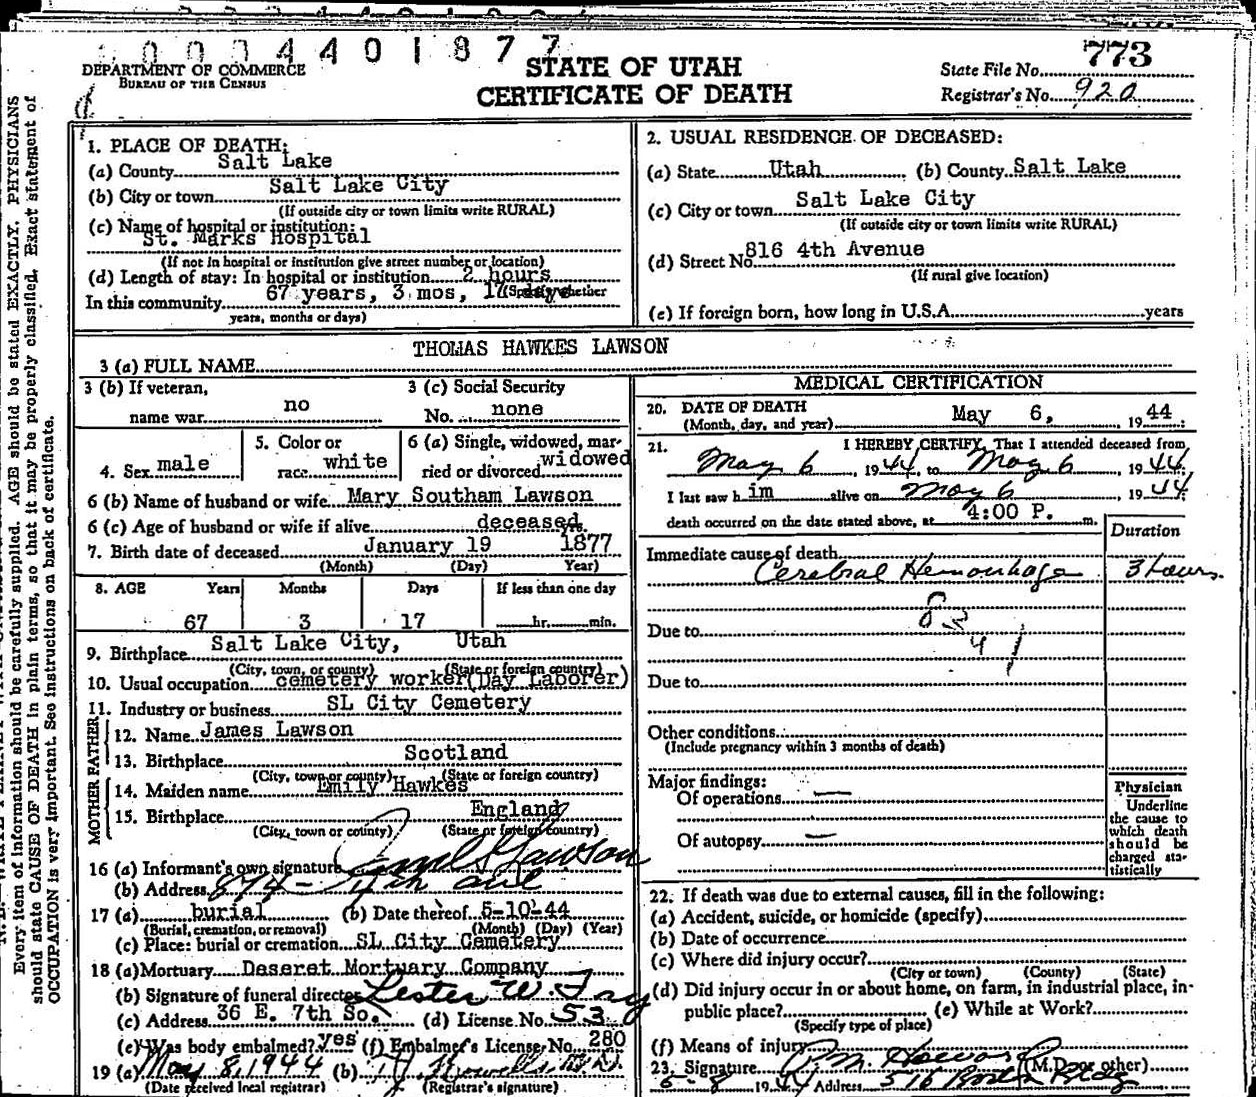 0 0 0 4 4 0 1 8 7 7
DEPARTMENT OF COMMERCE
BUREAU OF THE CENSUS
STATE OF UTAH
CERTIFICATE OF DEATH
State File No. 773
Registrar's No. 920
1. PLACE OF DEATH:
(a) County Salt Lake
(b) City or town Salt Lake City
(If outside city or town limits write RURAL)
(c) Name of hospital or institution:
St. Marks Hospital
(If not in hospital or institution give street number or location)
(d) Length of stay: In hospital or institution 2 hours
(Specify whether
In this community 67 years, 3 mos, 17 days
years, months or days)
2. USUAL RESIDENCE OF DECEASED:
(a) State Utah (b) County Salt Lake
(c) City or town Salt Lake City
(If outside city or town limits write RURAL)
(d) Street No. 816 4th Avenue
(If rural give location)
(e) If foreign born, how long in U.S.A. years
3 (a) FULL NAME THOMAS HAWKES LAWSON
3 (b) If veteran,
name war no
3 (c) Social Security
No. none
4. Sex male
5. Color or
race white
6 (a) Single, widowed, mar-
ried or divorced widowed
6 (b) Name of husband or wife Mary Southam Lawson
6 (c) Age of husband or wife if alive deceased yrs.
7. Birth date of deceased January 19 1877
(Month) (Day) Year)
8. AGE Years Months Days If less than one day
67 3 17 hr. min.
9. Birthplace Salt Lake City, Utah
(City, town, or county) (State or foreign country)
10. Usual occupation cemetery worker (Day Laborer)
11. Industry or business SL City Cemetery
FATHER
12. Name James Lawson
13. Birthplace Scotland
(City, town or county) (State or foreign country)
MOTHER
14. Maiden name Emily Hawkes
15. Birthplace England
(City, town or county) (State or foreign country)
16 (a) Informant's own signature Lawson
(b) Address 874 - 4th ave
17 (a) burial (b) Date thereof 5-10-44
(Burial, cremation, or removal) (Month) (Day) (Year)
(c) Place: burial or cremation SL City Cemetery
18 (a) Mortuary Deseret Mortuary Company
(b) Signature of funeral director Lester W.
(c) Address 36 E. 7th So. (d) License No. 53
(e) Was body embalmed? yes (f) Embalmer's License No. 280
19 (a) May 8, 1944 (b)
(Date received local registrar) (Registrar's signature)
MEDICAL CERTIFICATION
20. DATE OF DEATH
(Month, day, and year) May 6, 1944
21. I HEREBY CERTIFY, That I attended deceased from
May 6, 1944, to May 6, 1944
I last saw h im alive on May 6, 1944
death occurred on the date stated above, at 4:00 P. m.
Duration
Immediate cause of death
Cerebral Hemorrhage 3 hours.
83
41
Due to
Due to
Other conditions
(Include pregnancy within 3 months of death)
Major findings:
Of operations —
Of autopsy —
Physician
Underline
the cause to
which death
should be
charged sta-
tistically
22. If death was due to external causes, fill in the following:
(a) Accident, suicide, or homicide (specify)
(b) Date of occurrence
(c) Where did injury occur?
(City or town) (County) (State)
(d) Did injury occur in or about home, on farm, in industrial place, in-
public place? (e) While at Work?
(Specify type of place)
(f) Means of injury
23. Signature (M.D. or other)
5-8 1944 Address 516 Bldg
Every item of information should be carefully supplied. AGE should be stated EXACTLY. PHYSICIANS
should state CAUSE OF DEATH in plain terms, so that it may be properly classified. Exact statement of
OCCUPATION is very important. See instructions on back of certificate.